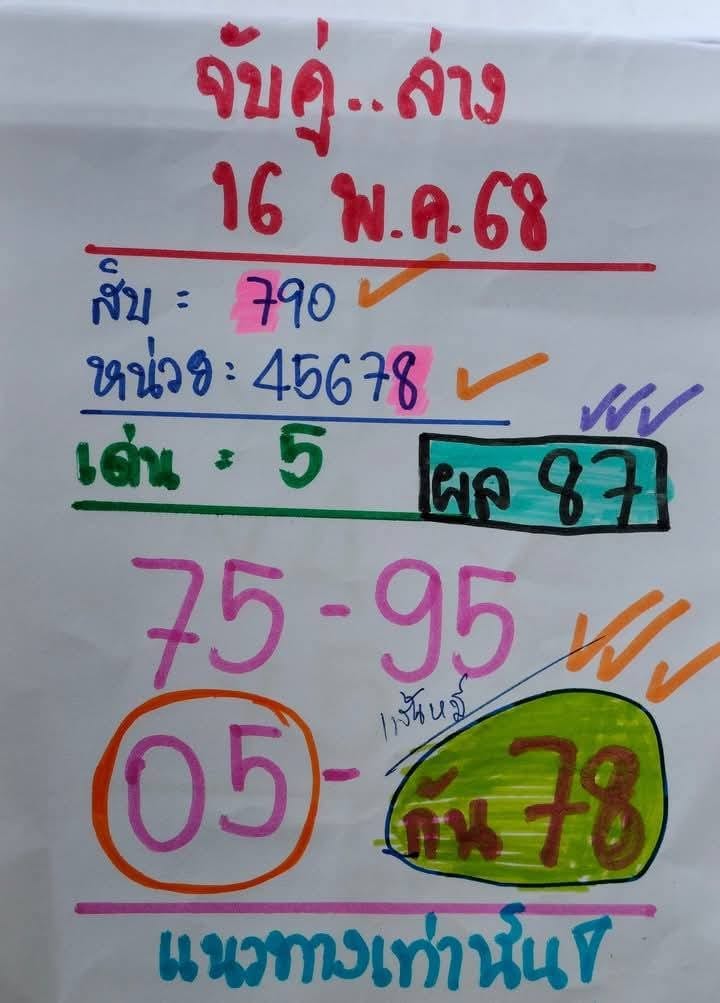 จับคู่..ล่าง
16 พ.ค.68
สิบ = 790
หน่วย = 45678
เด่น = 5
ผล 87
75-95
05-
กัน 78
แนวทางเท่านั้น